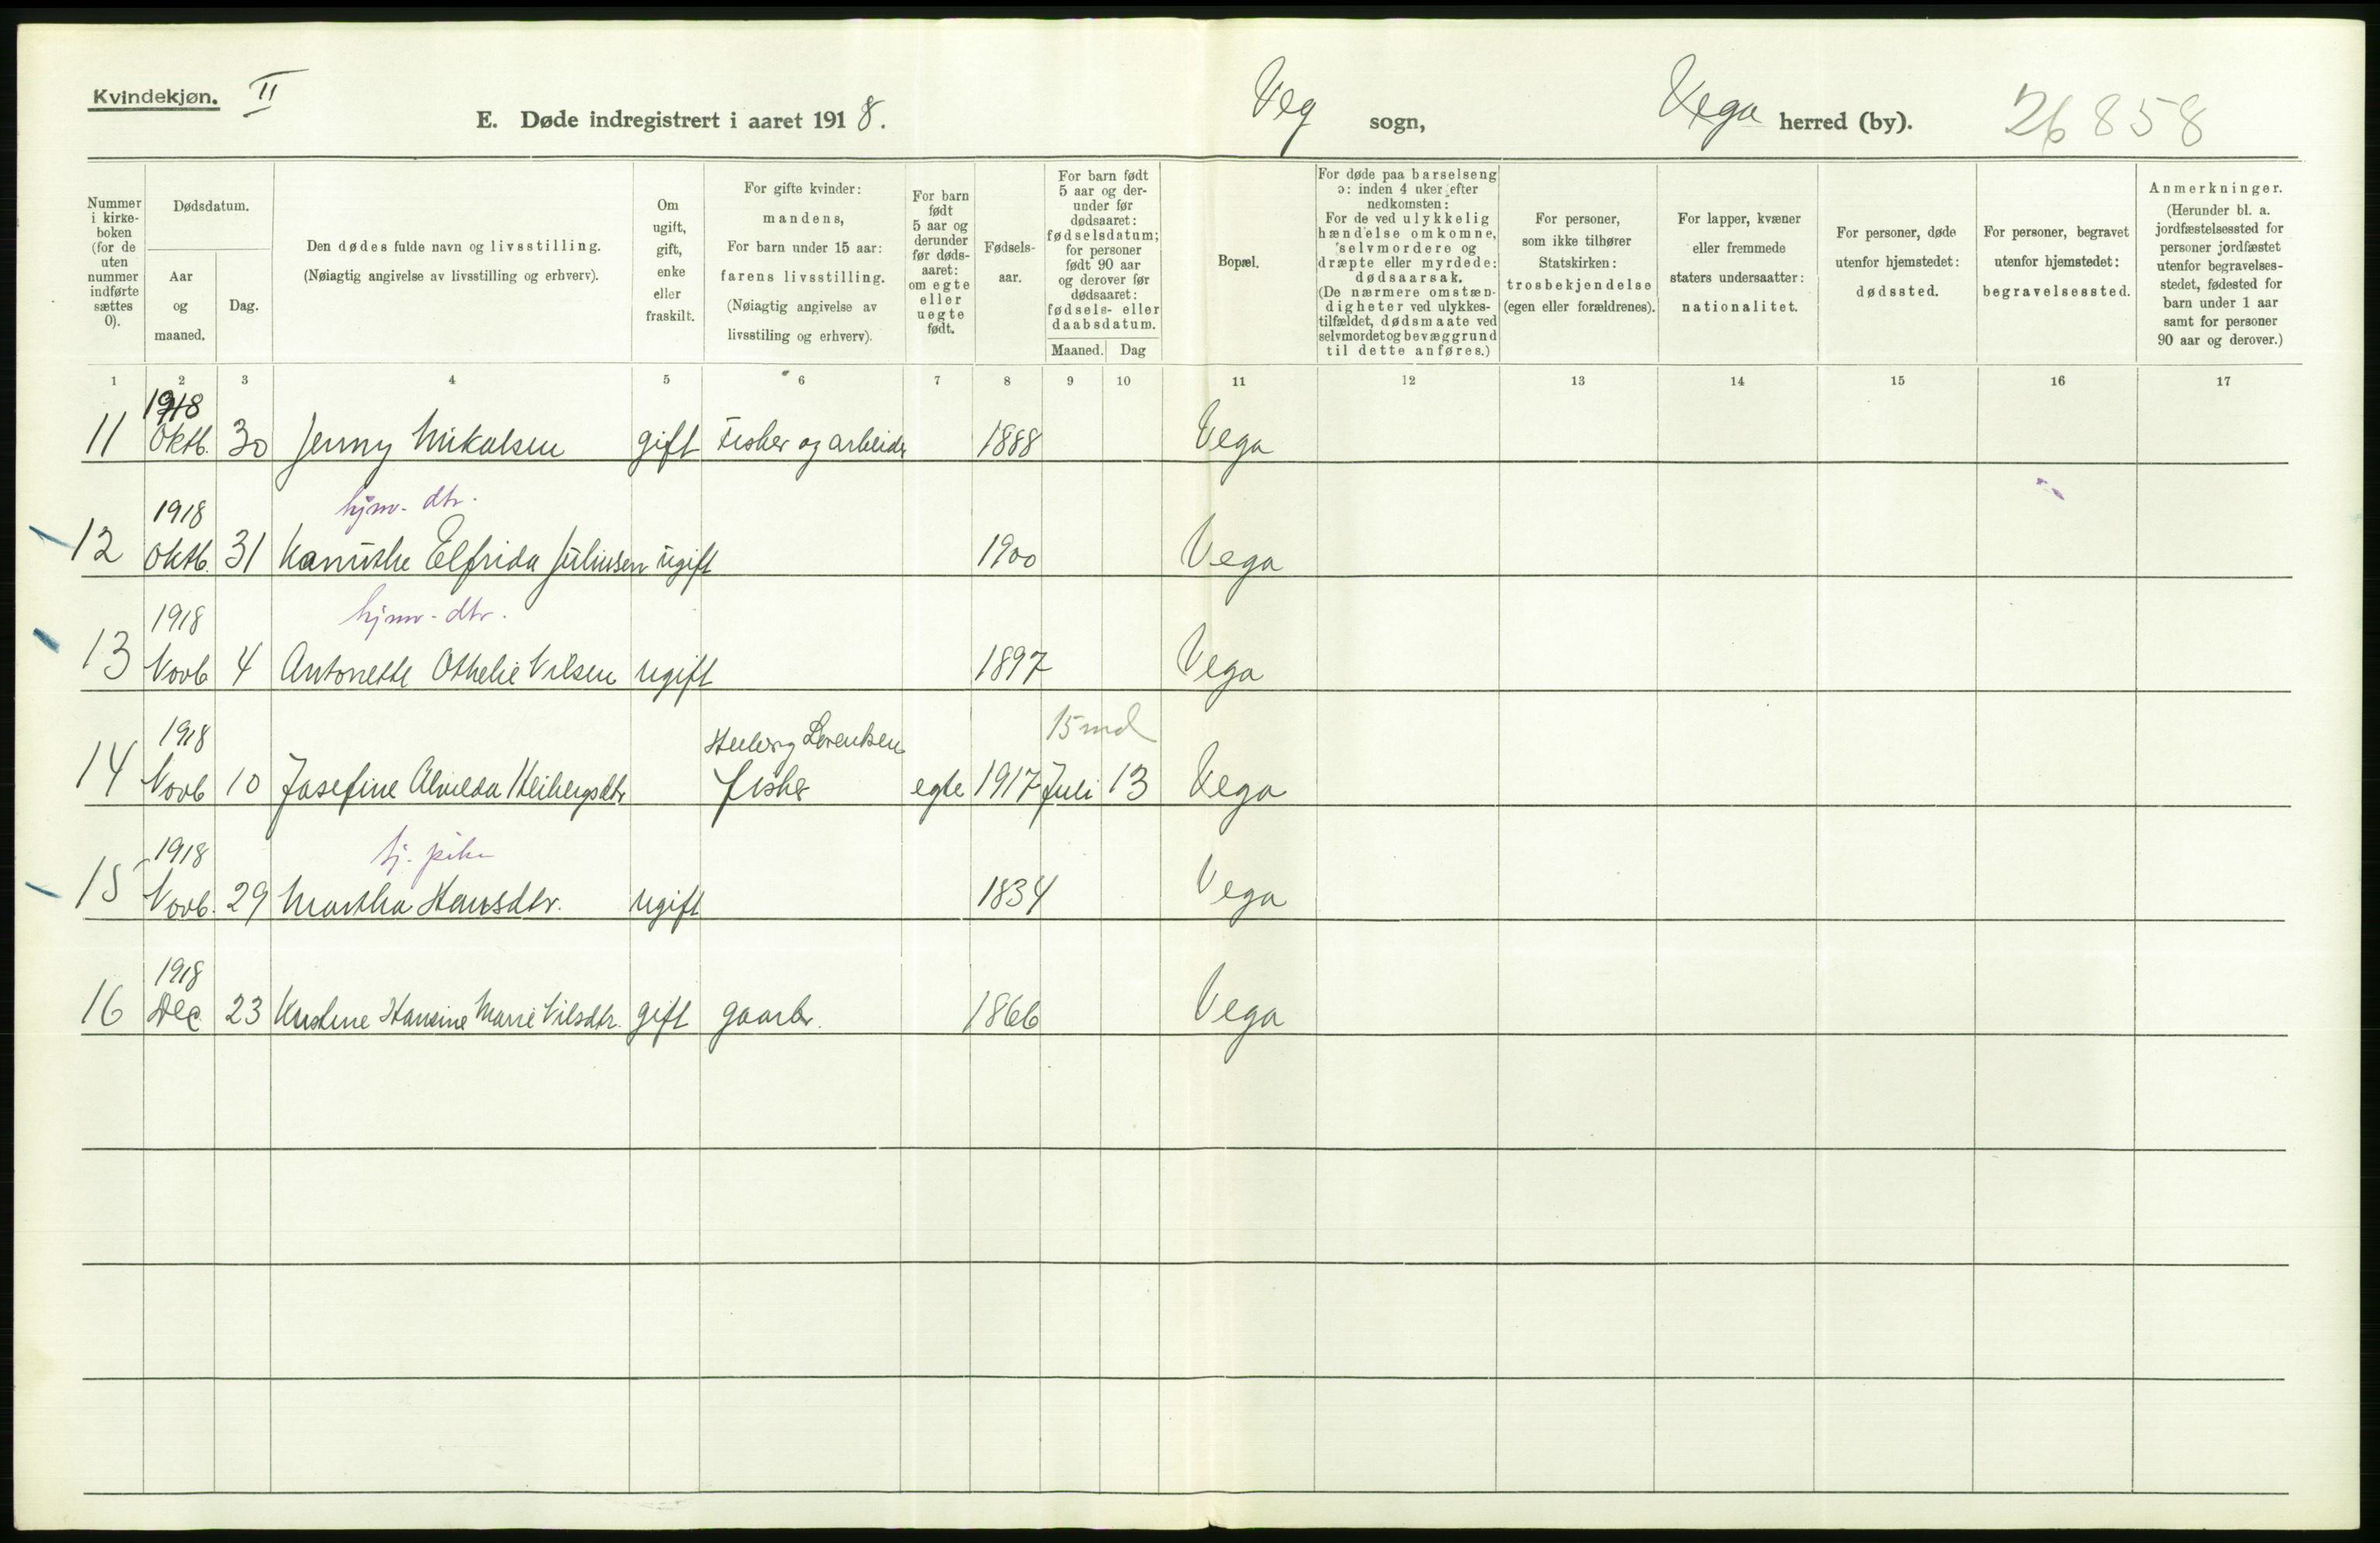 Kvindekjøn. II
E. Døde indregistrert i aaret 1918. Veg sogn, Vega herred (by). 26858
Nummer i kirke-boken (for de uten nummer indførte sættes 0).
Dødsdatum.
Aar og maaned.
Dag.
Den dødes fulde navn og livsstilling.
(Nøiagtig angivelse av livsstilling og erhverv).
Om ugift, gift, enke eller fraskilt.
For gifte kvinder: mandens,
For barn under 15 aar: farens livsstilling.
(Nøiagtig angivelse av livsstiling og erhverv).
For barn født 5 aar og derunder før døds-aaret: om egte eller uegte født.
Fødsels-aar.
For barn født 5 aar og der-under før dødsaaret: fødselsdatum; for personer født 90 aar og derover før dødsaaret: fødsels- eller daabsdatum.
Maaned. Dag
Bopæl.
For døde paa barselseng ɔ: inden 4 uker efter nedkomsten:
For de ved ulykkelig hændelse omkomne, selvmordere og dræpte eller myrdede: dødsaarsak.
(De nærmere omstæn-digheter ved ulykkes-tilfældet, dødsmaate ved selvmordet og bevæggrund til dette anføres.)
For personer, som ikke tilhører Statskirken: trosbekjendelse (egen eller forældrenes).
For lapper, kvæner eller fremmede staters undersaatter: nationalitet.
For personer, døde utenfor hjemstedet: dødssted.
For personer, begravet utenfor hjemstedet: begravelsessted.
Anmerkninger.
(Herunder bl. a. jordfæstelsessted for personer jordfæstet utenfor begravelses-stedet, fødested for barn under 1 aar samt for personer 90 aar og derover.)
1 2 3 4 5 6 7 8 9 10 11 12 13 14 15 16 17
1918
11 Oktb. 30 Jenny Mikalsen gift Fisker og arbeider 1888 Vega
1918 hjmv. dtr.
12 Oktb. 31 Elfrida Juliusen ugift 1900 Vega
1918 hjmv. dtr.
13 Novb 4 Antonette Othelie Nilsen ugift 1897 Vega
1918 Heiberg Lorentsen 15 md
14 Novb 10 Josefine Alvilda Heibergsdtr fisker egte 1917 Juli 13 Vega
1918 hj. pike
15 Novb. 29 Martha Hansdtr. ugift 1834 Vega
1918
16 Dec 23 Kristine Hansine Marie Nilsdtr. gift gaardbr. 1866 Vega